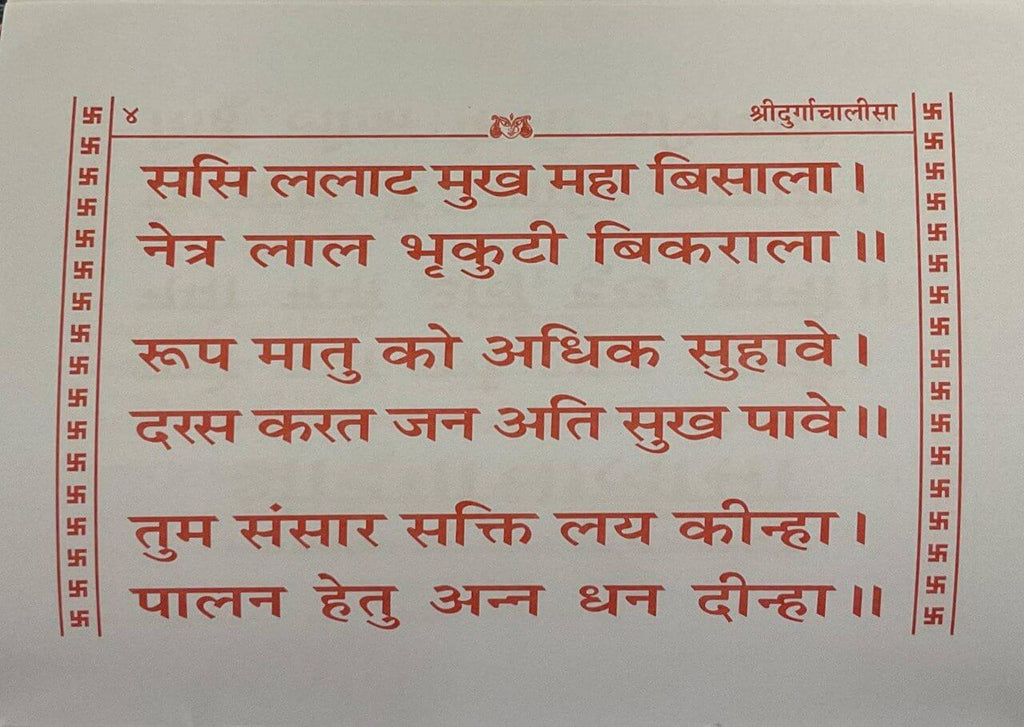 ४ श्रीदुर्गाचालीसा
ससि ललाट मुख महा बिसाला।
नेत्र लाल भृकुटी बिकराला॥
रूप मातु को अधिक सुहावे।
दरस करत जन अति सुख पावे॥
तुम संसार सक्ति लय कीन्हा।
पालन हेतु अन्न धन दीन्हा॥